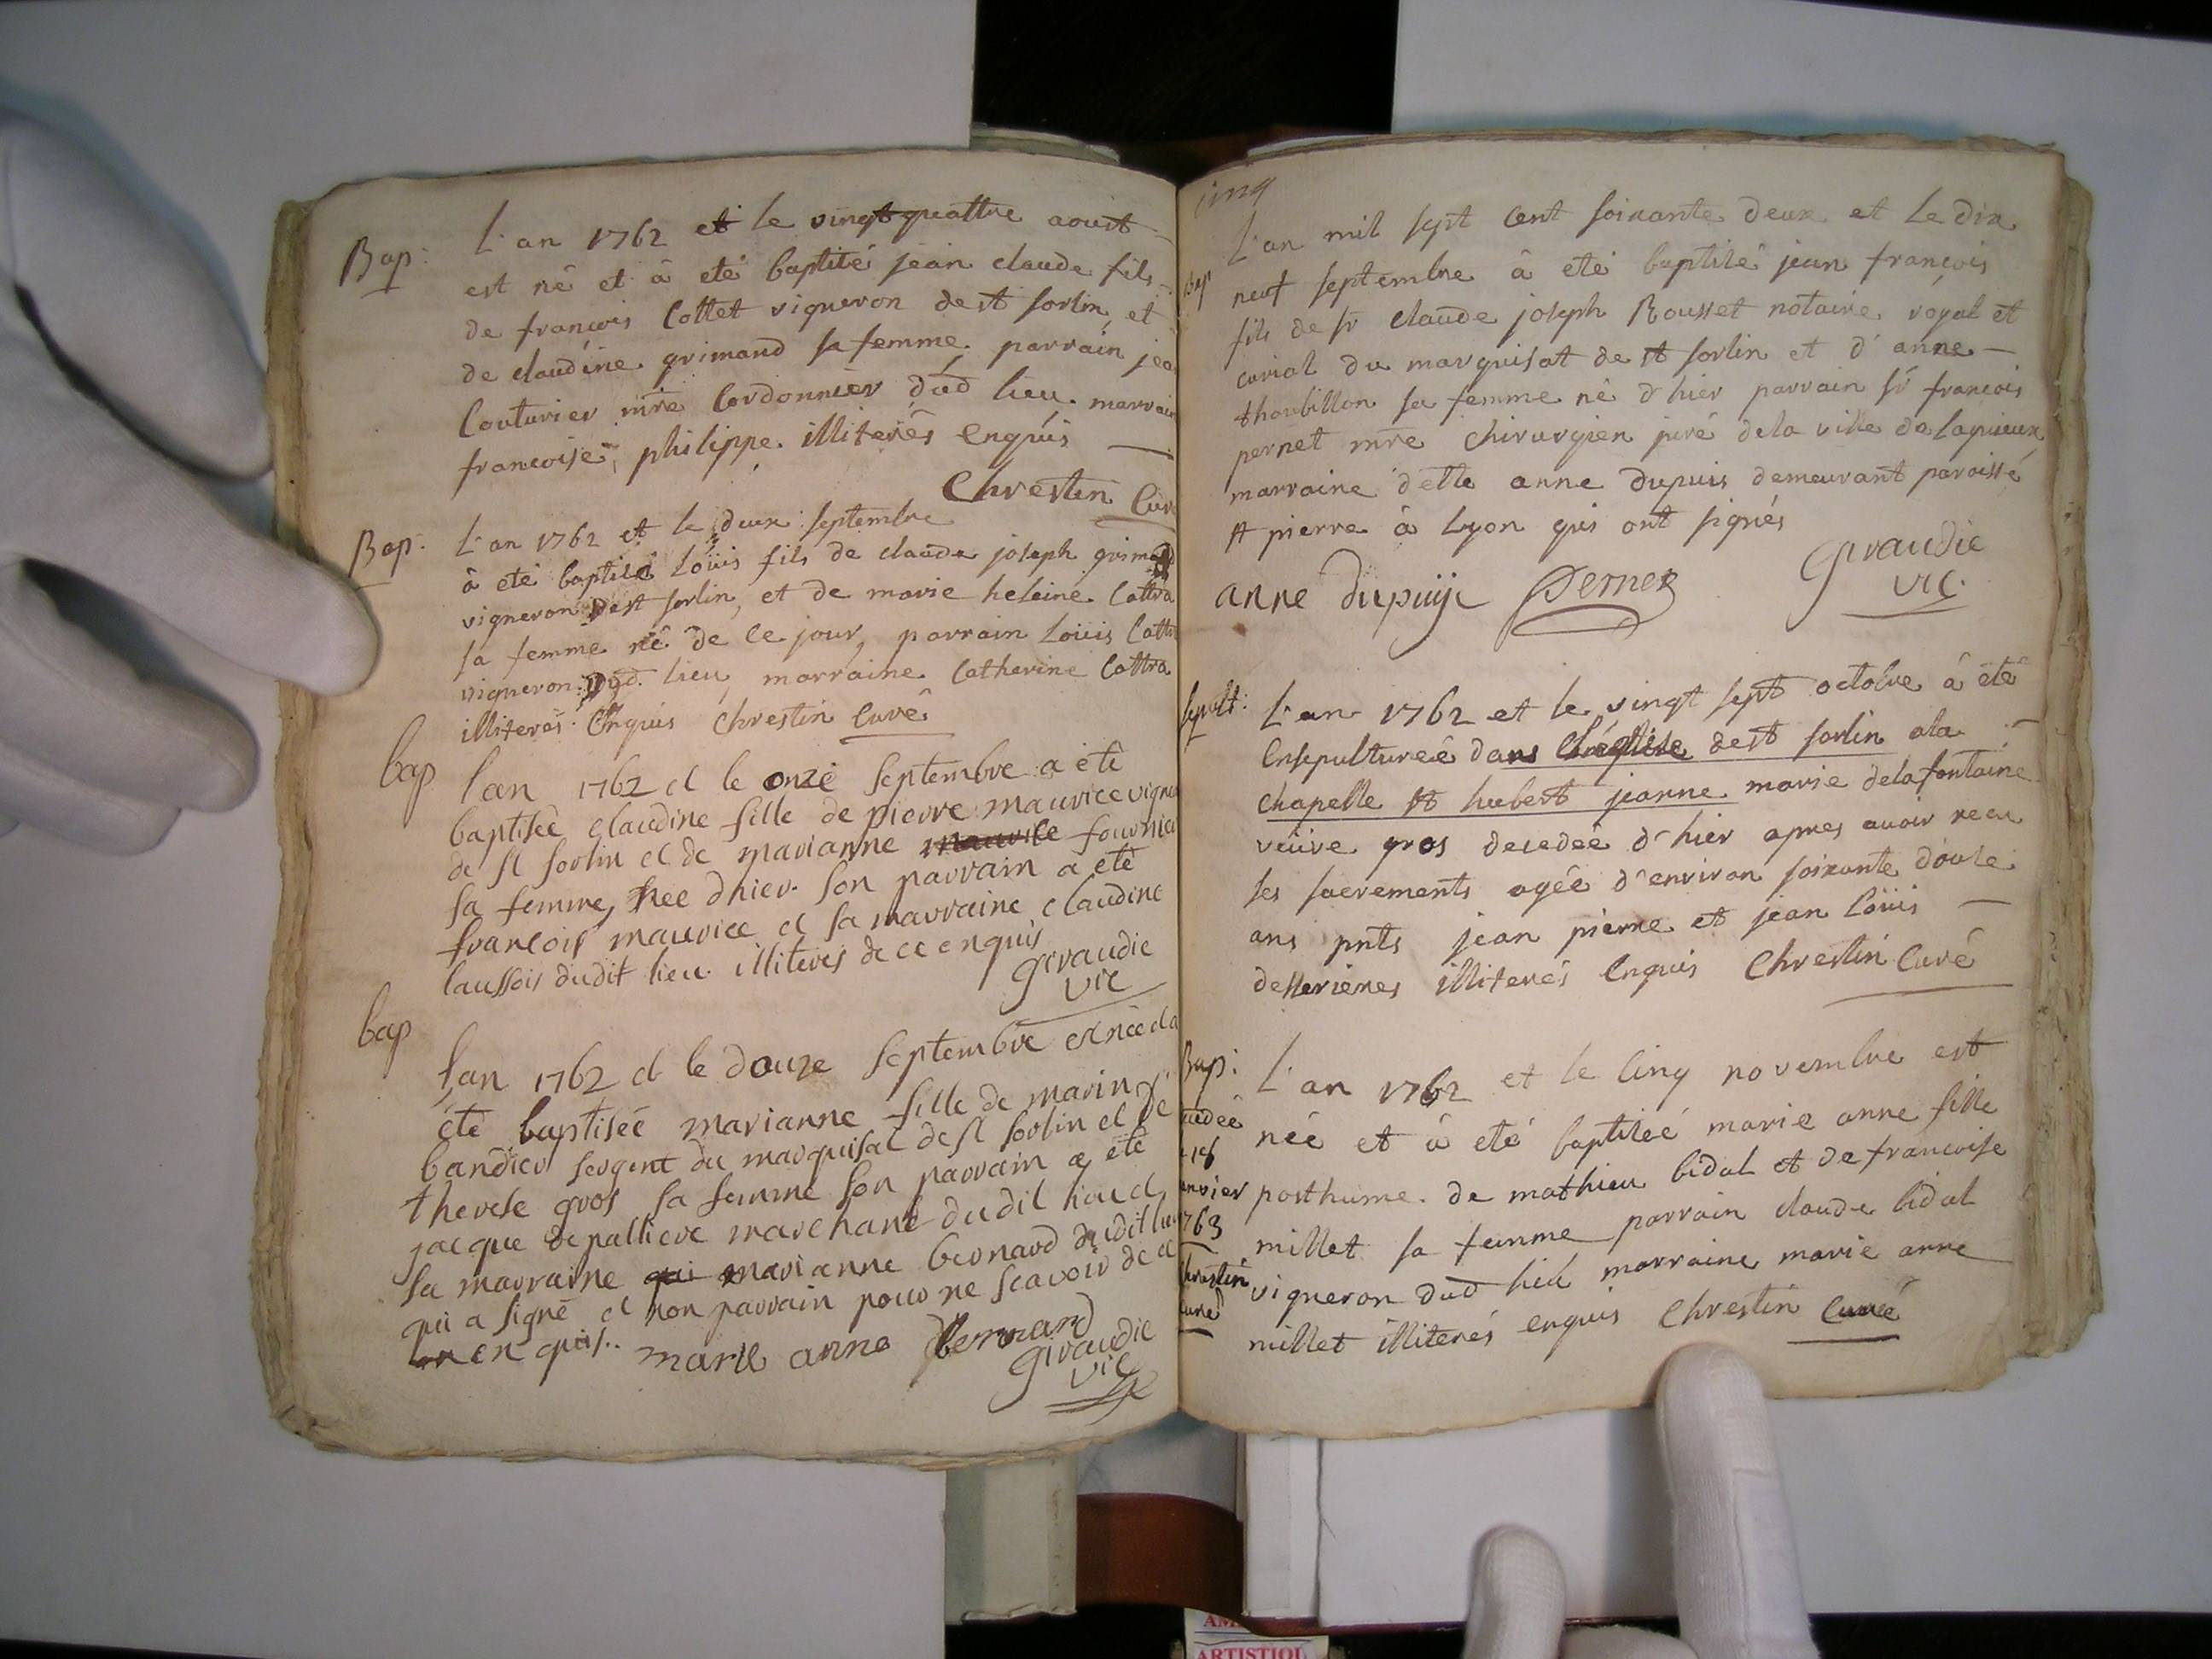 Bap: L'an 1762 et le vingt quattre aoust
est né et à eté baptisé jean claude fils
de francois Cottet vigneron de st sorlin et
de claudine grimand sa femme. parrain jea
Couturier mre Cordonnier dud lieu. marrain
francoise philippe. illiterés Enquis
Chrestin Curé
Bap: L'an 1762 et le deux septembre
à eté baptisé Loüis fils de claude joseph grimand
vigneron de st sorlin, et de marie heleine Cottra
sa femme né de ce jour, parrain Loüis Cottra
vigneron dud. lieu, marraine Catherine Cottra
illiterés Enquis Chrestin Curé
bap lan 1762 et le onze septembre a été
baptisée claudine fille de pierre maurice vigne
de st sorlin et de marianne maurice fournier
sa femme, née dhier. son parrain a été
francois maurice et sa marraine claudine
laussois dudit lieu illiterés de ce enquis
Giraudie
vic
bap
lan 1762 et le douze septembre est née et a
été baptisée marianne fille de marin
bandier sergent du marquisat de st sorlin et de
therese gros sa femme son parrain a été
jacque depalliere marchant dudit lieu et
sa marraine qui marianne bernard dudit lieu
qui a signé et non parrain pour ne scavoir de ce
enquis. marie anne Bernard
Giraudie
vic
cinq
L'an mil sept cent soixante deux et le dix
Bap neuf septembre à eté baptisé jean francois
fils de sr claude joseph Rousset notaire röyal et
curial du marquisat de st sorlin et d'anne
thorbillon sa femme né d'hier parrain sr francois
pernet mre chirurgien juré de la ville de lagnieux
marraine delle anne dupuis demeurant paroisse
st pierre à Lyon qui ont signés
anne dupuij Pernet Giraudie
vic.
sepult: L'an 1762 et le vingt sept octobre à été
Ensepultureé dans l'église de st sorlin a la
chapelle st hubert jeanne marie delafontaine
veüve gros decedeé d'hier apres avoir recu
ses sacrements agée d'environ soixante douse
ans pnts jean pierre et jean loüis
desserieres illiterés Enquis Chrestin Curé
Bap: L'an 1762 et le cinq novembre est
née et à eté baptiseé marie anne fille
posthume. de mathieu bidal et de francoise
millet sa femme parrain claude bidal
vigneron dud lieu marraine marie anne
millet illiterés enquis Chrestin Curé
cedeé
anvier
763
hrestin
curé
AM
ARTISTIQU